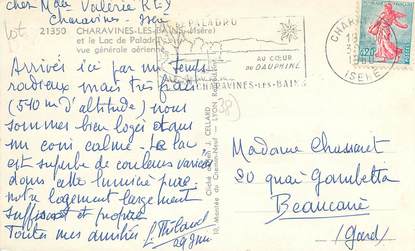 chez Mme Valérie
Charavines - Isère
21350 CHARAVINES-LES-BAINS (Isère)
et le Lac de Paladru
vue générale aérienne
lot
PALADRU
AU CŒUR
DU DAUPHINÉ
CHARAVINES-LES-BAINS
CHARAVINES
ISERE
0,20
(38)
Cliché J. CELLARD
10, Montée du Chemin-Neuf - LYON
Arrivés ici par un temps
radieux mais très frais
(540 m d'altitude) nous
sommes bien logés et dans
un coin calme. Le lac
est superbe de couleurs variées
dans cette lumière pure.
notre logement largement
suffisant et propre.
Toutes mes amitiés
Madame Chassait
20 quai Gambetta
Beaucaire
(Gard)